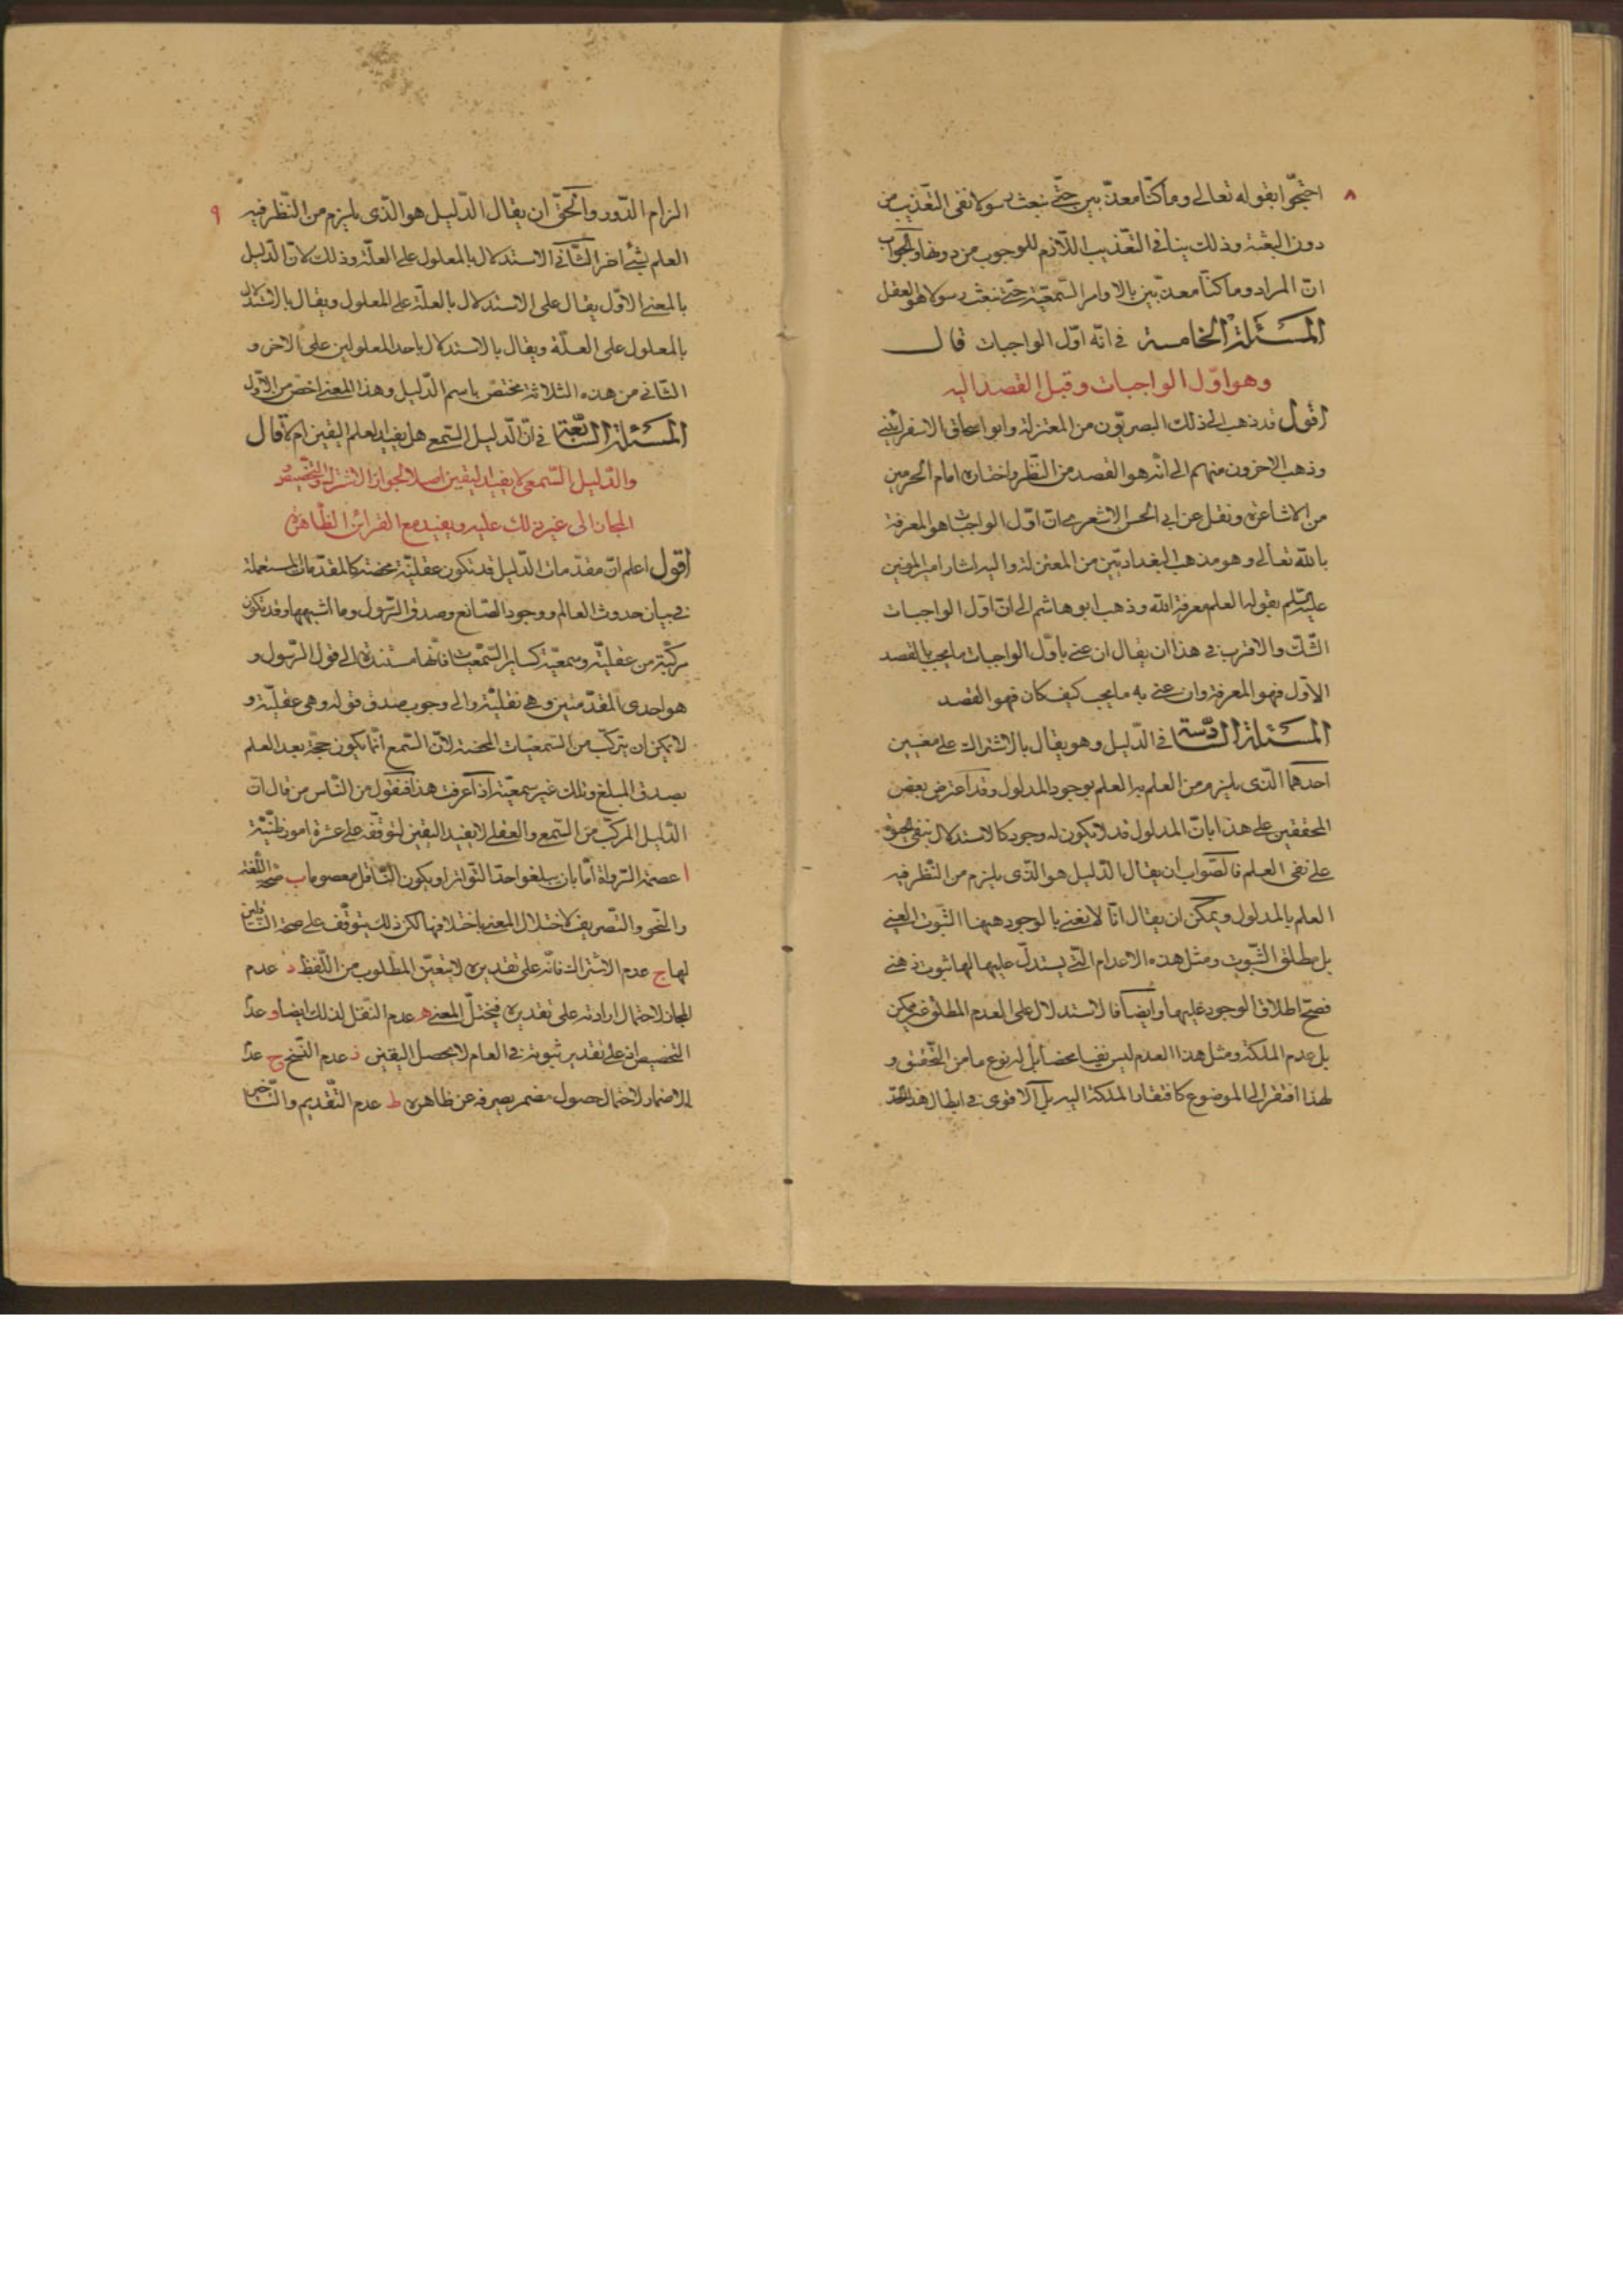 ٨
احتجّوا بقوله تعالى وما كنّا معذّبين حتّى نبعث رسولا نفى التّعذيب من
دون البعثة وذلك ينافى التّعذيب اللّازم للوجوب من دونها والجواب
انّ المراد وما كنّا معذّبين بالاوامر السّمعيّة حتّى نبعث رسولا هو العقل
المسئلة الخامسة فى انّه اوّل الواجبات قال
وهو اوّل الواجبات وقيل القصد اليه
اقول قد ذهب الى ذلك البصريّون من المعتزلة وابو اسحاق الاسفراينى
وذهب الاخرون منهم الى انّه هو القصد من النّظر واختاره امام الحرمين
من الاشاعرة ونقل عن ابى الحسن الاشعرى انّ اوّل الواجبات هو المعرفة
بالله تعالى وهو مذهب البغداديّين من المعتزلة واليه اشار امير المؤمنين
عليه السّلم بقوله العلم معرفة الله وذهب ابو هاشم الى انّ اوّل الواجبات
الشّك والاقرب فى هذا ان يقال ان عنى باوّل الواجبات ما يجب بالقصد
الاوّل فهو المعرفة وان عنى به ما يجب كيف كان فهو القصد
المسئلة السّادسة فى الدّليل وهو يقال بالاشتراك على معنيين
احدهما الّذى يلزم من العلم به العلم بوجود المدلول وقد اعترض بعض
المحققين على هذا بانّ المدلول قد لا يكون له وجود كالاستدلال بنفى
على نفى العلم فالصّواب ان يقال الدّليل هو الّذى يلزم من النّظر فيه
العلم بالمدلول ويمكن ان يقال انّا لا نعنى بالوجود ههنا الثّبوت العينى
بل مطلق الثّبوت ومثل هذه الاعدام الّتى يستدلّ عليها لها ثبوت ذهنى
فصحّ اطلاق الوجود عليها وايضا فالاستدلال على العدم المطلق غير ممكن
بل عدم الملكة ومثل هذا العدم ليس نفيا محضا بل له نوع ما من التّحقيق و
لهذا افتقر الى الموضوع كافتقار الملكة اليه بل الاقوى فى ابطال هذا الحدّ
٩
الزام الدّور والحقّ ان يقال الدّليل هو الّذى يلزم من النّظر فيه
العلم بشئ اخر الثّانى الاستدلال بالمعلول على العلّة وذلك لانّ الدّليل
بالمعنى الاوّل يقال على الاستدلال بالعلّة على المعلول ويقال بالاستدلال
بالمعلول على العلّة ويقال بالاستدلال باحد المعلولين على الاخر و
الثّانى من هذه الثلاثة مختصّ باسم الدّليل وهذا المعنى اخصّ من الاوّل
المسئلة السّابعة فى انّ الدّليل السّمع هل يفيد العلم اليقين ام لا قال
والدّليل السّمعى لا يفيد اليقين اصلا لجواز الاشتراك والتّخصيص و
المجاز الى غير ذلك عليه ويفيد مع القرائن الظّاهرة
اقول اعلم انّ مقدّمات الدّليل قد تكون عقليّة محضة كالمقدّمات المستعملة
فى بيان حدوث العالم ووجود الصّانع وصدق الرّسول وما اشبهها وقد تكون
مركّبة من عقليّة وسمعيّة كساير السّمعيّات فانّها مستندة الى قول الرّسول و
هو احدى المقدّمتين وهى نقليّة والى وجوب صدق قوله وهى عقليّة و
لا يمكن ان يتركّب من السّمعيّات المحضة لانّ السّمع انّما يكون حجّة بعد العلم
بصدق المبلغ وتلك غير سمعيّة اذا عرفت هذا فنقول من النّاس من قال انّ
الدّليل المركّب من السّمع والعقل لا يفيد اليقين لتوقّفه على عشرة امور ظنّيّة
ا عصمة الرّواة امّا بان يبلغوا حدّ التّواتر او يكون النّاقل معصوما ب صحّة اللّغة
والنّحو والتّصريف لاختلال المعنى باختلافها لكن ذلك يتوقّف على صحة النّاقلين
لها ج عدم الاشتراك فانّه على تقديره لا يتعيّن المطلوب من اللّفظ د عدم
المجاز لاحتمال ارادته على تقديره فيختلّ المعنى ه عدم النّقل لذلك ايضا و عدم
التخصيص لانه على تقدير ثبوته فى العام لا يحصل اليقين ز عدم النّسخ ح عدم
الاضمار لاحتمال حصول مضمر يصرفه عن ظاهره ط عدم التّقديم والتّاخير